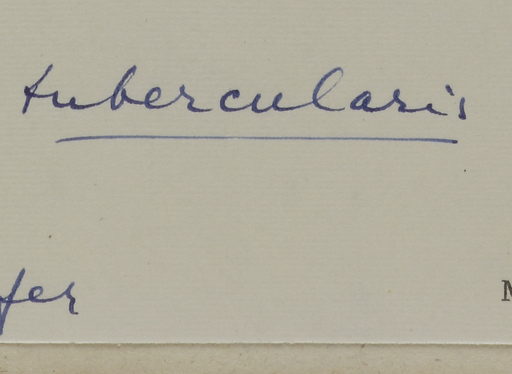 tubercularis
fer M